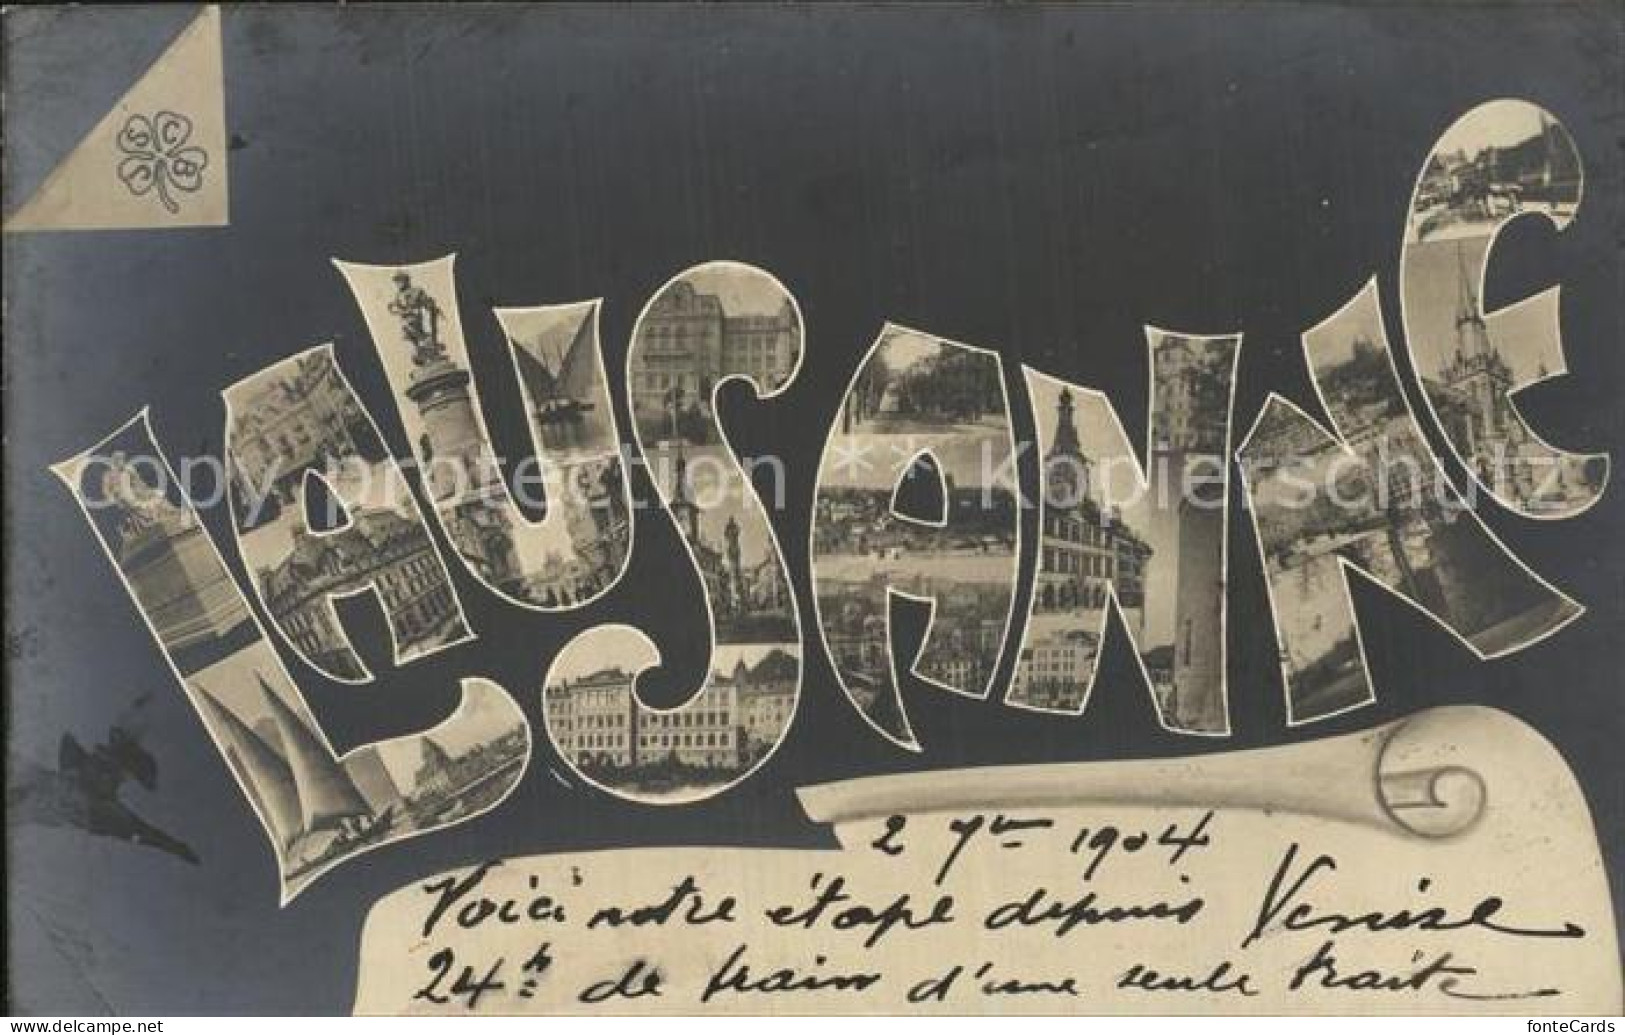 S C
S B
LAUSANNE
copy protection ** Kopierschutz
2 7bre 1904
Voici notre étape depuis Venise
24h de train d'une seule traite
fonteCards